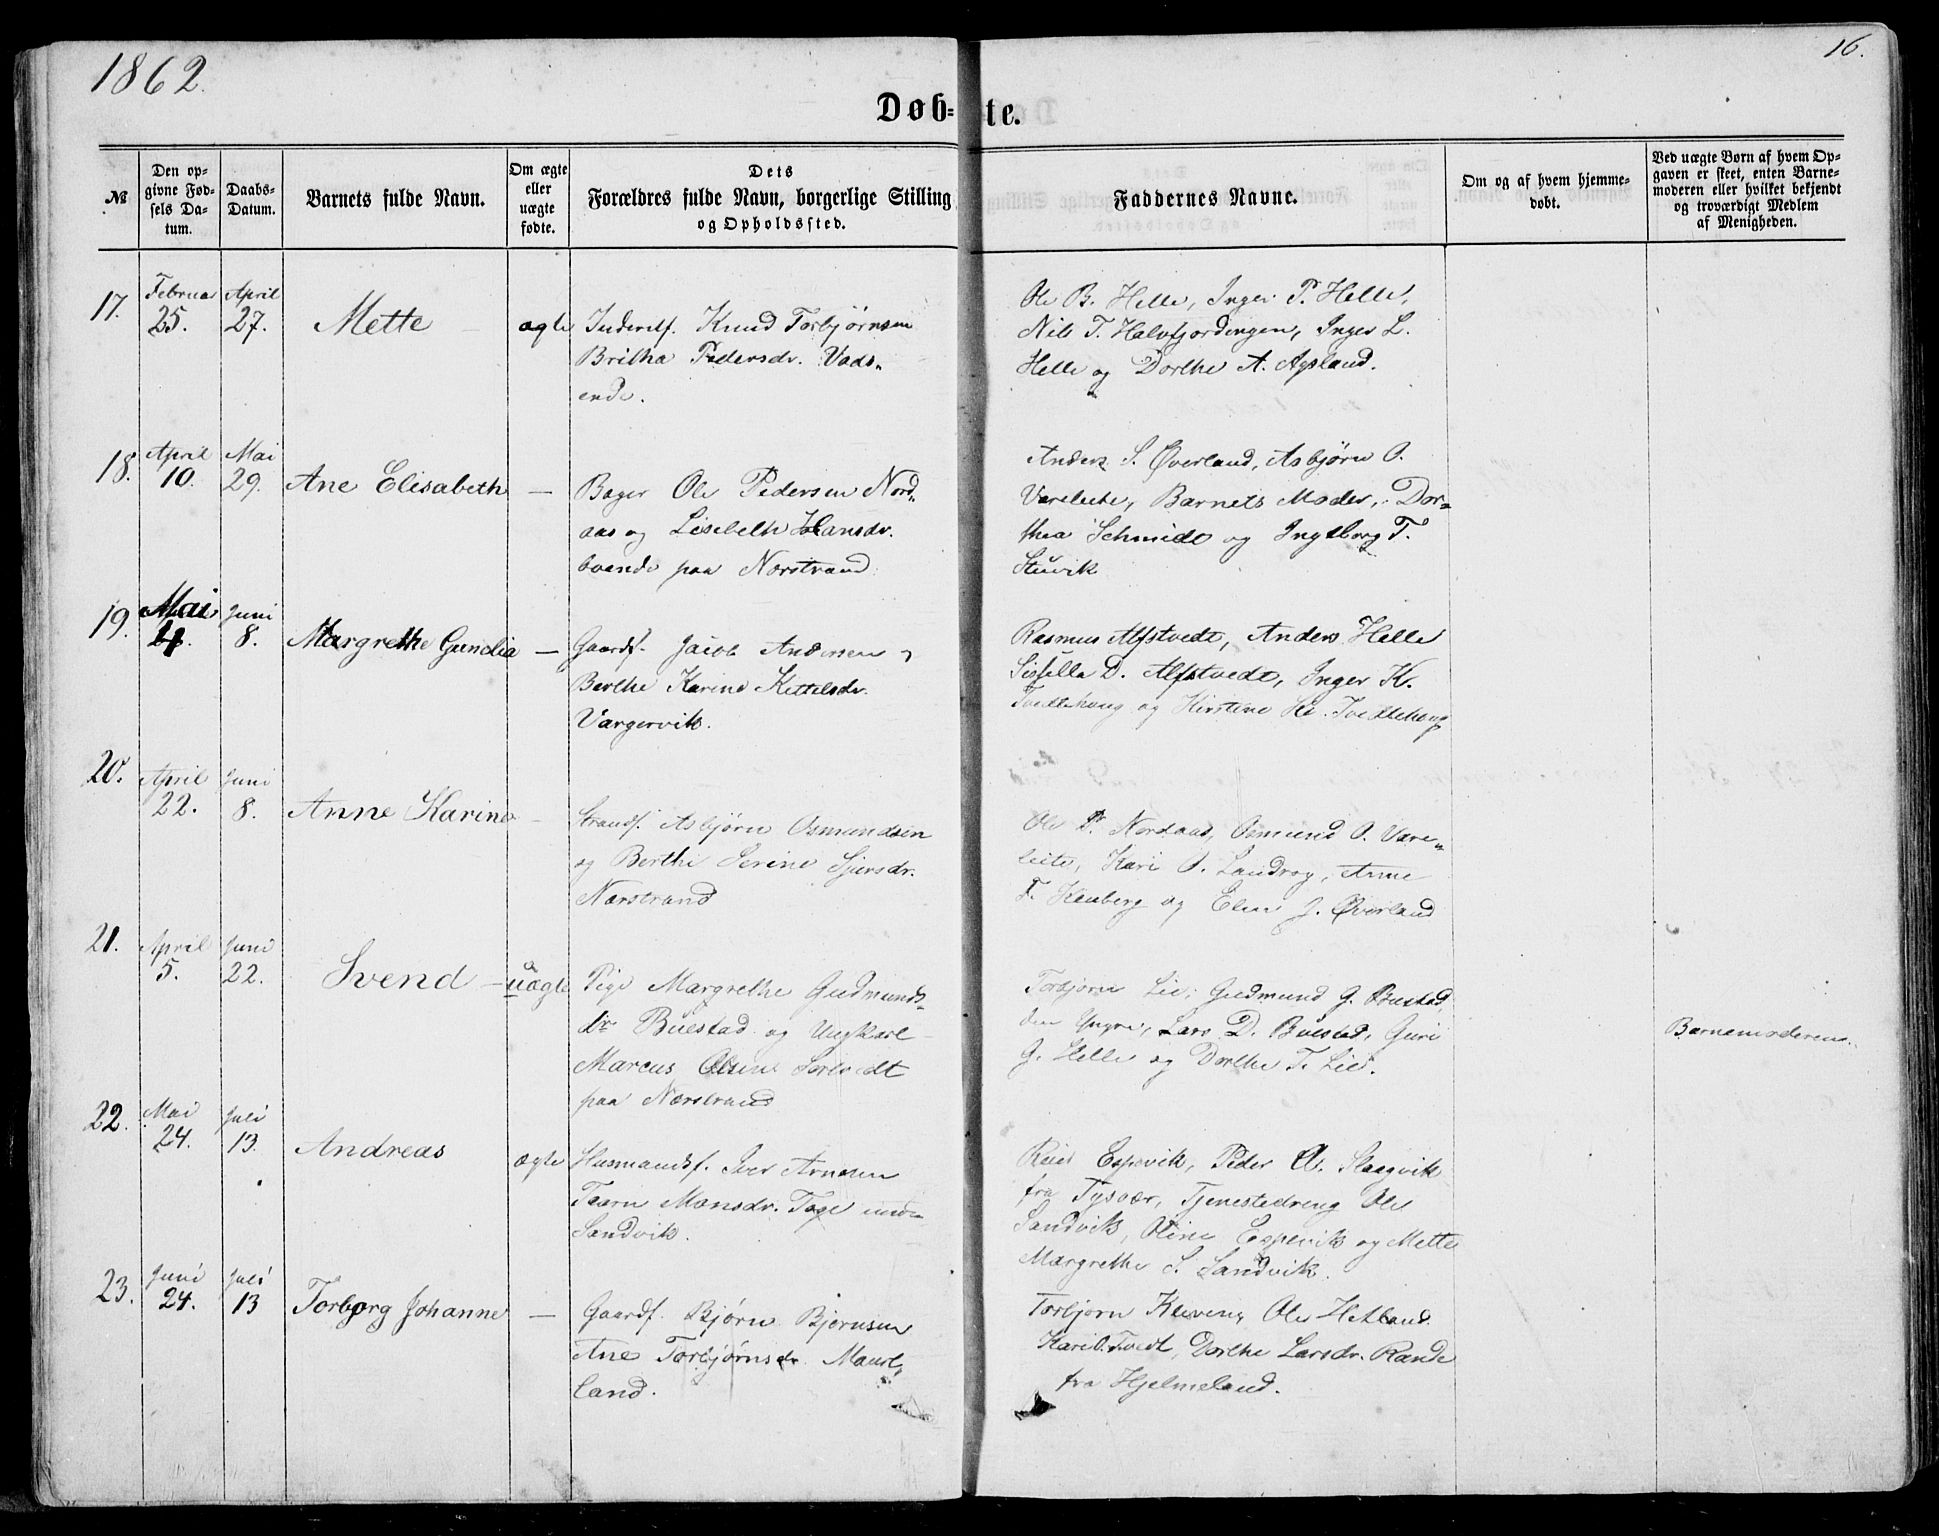 1862.
16.
Døb=
te.
№
Den op-
givne Fød-
sels Da-
tum.
Daabs-
Datum.
Barnets fulde Navn.
Om ægte
eller
uægte
fødte.
Dets
Forældres fulde Navn, borgerlige Stilling
og Opholdssted.
Faddernes Navne.
Om og af hvem hjemme-
døbt.
Ved uægte Børn af hvem Op-
gaven er skeet, enten Barne-
moderen eller hvilket bekjendt
og troværdigt Medlem
af Menigheden.
17.
Februar
25.
April
27.
Mette
ægte
Inderstf. Knud Torbjørnsen
Britha Pedersdr. Vads„
ende.
Ole B. Helle, Inger P. Helle,
Nils T. Halvfjordingen, Inger L.
Helle og Dorthe A. Apsland.
18.
April
10.
Mai
29.
Ane Elisabeth
—
Bager Ole Pedersen Nord„
aas og Lisebeth Hansdr.
boende paa Nærstrand
Anders S. Øverland, Asbjørn O.
Vareleite, Barnets Moder, Dor„
thea Schmidt og Ingeborg T.
Stuvik
19.
Mai
4.
Juni
8.
Margrethe Gundia
—
Gaardf. Jacob Andersen og
Berthe Karine Kettelsdr.
Vargervik.
Rasmus Alfstvedt, Anders Helle
Sissilla D. Alfstvedt, Inger K.
Tvedtehoug og Kirstine Tvedtehoug
20.
April
22.
Juni
8.
Anne Karine
—
Strandf. Asbjørn Osmundsen
og Berthe Serine Sjursdr.
Nærstrand
Ole P. Nordaas, Osmund O. Vare„
leite, Kari O. Landrøg, Anne
T. Kouberg og Elen J. Øverland
21.
April
5.
Juni
22.
Svend
— uægte
Pige Margrethe Gudmunds„
dr Buestad og Ungkarl
Marcus Olsen
paa Nærstrand
Torbjørn Lie, Gudmund G. Buestad,
den Yngre, Lars D. Buestad, Guri
G. Helle og Dorthe T. Lie.
Barnemoderen.
22.
Mai
24.
Juli
13.
Andreas
ægte
Husmandsf. Iver Arnesen
Taarn Monsdr. Tage under
Sandvik.
Reier Espevik, Peder A. Slaagvik
fra Tysvær, Tjenestedreng Ole
Sandvik, Oline Espevik og Mette
Margrethe S. Sandvik.
23.
Juni
24.
Juli
13
Torborg Johanne
—
Gaardf. Bjørn Bjørnsen
Ane Torbjørnsdr. Mourt„
land.
Torbjørn Kleven, Ole Hetland
Kari O. Tvedt, Dorthe Larsdr. Rande
fra Hjelmeland.